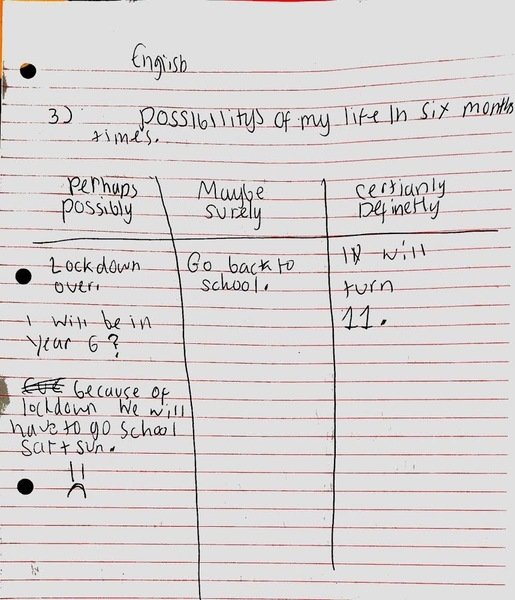 English
3) possibilitys of my life in six months
times.
perhaps
possibly
Maybe
surely
certianly
Definetly
Lockdown
over.
I will be in
year 6?
because of
lockdown we will
have to go school
sat + sun.
Go back to
school.
I will
turn
11.